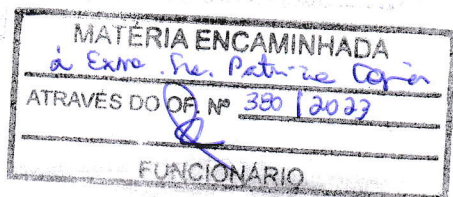 MATÉRIA ENCAMINHADA
à Exma. Sra. Patrícia
ATRAVÉS DO OF. Nº 380 / 2023
FUNCIONÁRIO